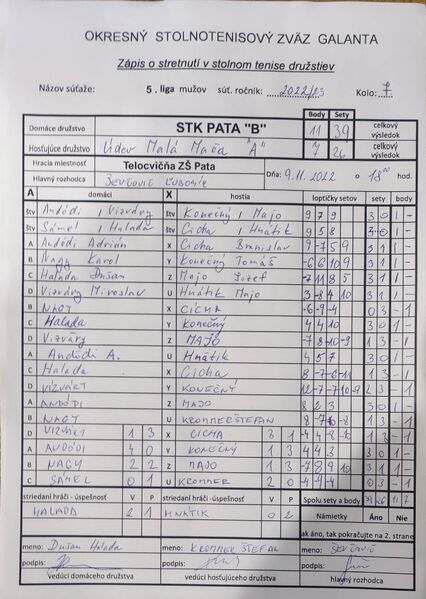 OKRESNÝ STOLNOTENISOVÝ ZVÄZ GALANTA
Zápis o stretnutí v stolnom tenise družstiev
Názov súťaže: 5. liga mužov súť. ročník: 2022/23 Kolo: 7
Body Sety
Domáce družstvo STK PATA "B" 11 39 celkový výsledok
Hosťujúce družstvo Údev Malá Mača "A" 7 26 celkový výsledok
Hracia miestnosť Telocvičňa ZŠ Pata
Hlavný rozhodca Dňa: 9.11.2022 o 18 00 hod.
A domáci X hostia loptičky setov sety body
štv Andódi, Vizváry štv Konečný, Majo 9 7 9 3 0 1 -
štv Sámel, Halada štv Cicha, Hnátik 9 5 8 3 0 1 -
A Andódi Adrián X Cicha Branislav 9 -7 5 9 3 1 1 -
B Nagy Karol Y Konečný Tomáš -6 6 10 9 3 1 1 -
C Halada Dušan Z Majo Jozef -7 11 8 5 3 1 1 -
D Vizváry Miroslav U Hnátik Majo 3 -8 4 10 3 1 1 -
B NAGY X CICHA -6 -9 -4 0 3 - 1
C Halada Y Konečný 4 4 10 3 0 1 -
D Vizváry Z MAJO -7 8 -10 -9 1 3 - 1
A Andódi A. U Hnátik 4 5 7 3 0 1 -
C Halada X Cicha 8 -7 -6 -11 1 3 - 1
D VIZVÁRY Y KONEČNÝ 12 -7 -7 10 -9 2 3 - 1
A ANDÓDI Z MAJO 8 2 3 3 0 1 -
B NAGY U KROMMER ŠTEFAN 8 -7 -10 -8 1 3 - 1
D VIZVÁRY 1 3 X CICHA 3 1 -4 -4 8 -10 1 3 - 1
A ANDÓDI 4 0 Y KONEČNÝ 1 3 4 4 3 3 0 1 -
B NAGY 2 2 Z MAJO 1 3 -7 8 9 10 3 1 1 -
C SÁMEL 0 1 U KROMMER 2 0 -4 9 -4 0 3 - 1
striedaní hráči - úspešnosť V P striedaní hráči - úspešnosť V P Spolu sety a body 39 26 11 7
HALADA 2 1 HNÁTIK 0 2 Námietky Áno Nie
ak áno, tak pokračujte na 2. strane
meno: Dušan Halada meno: KROMMER ŠTEFAN meno:
podpis: podpis: podpis:
vedúci domáceho družstva vedúci hosťujúceho družstva hlavný rozhodca